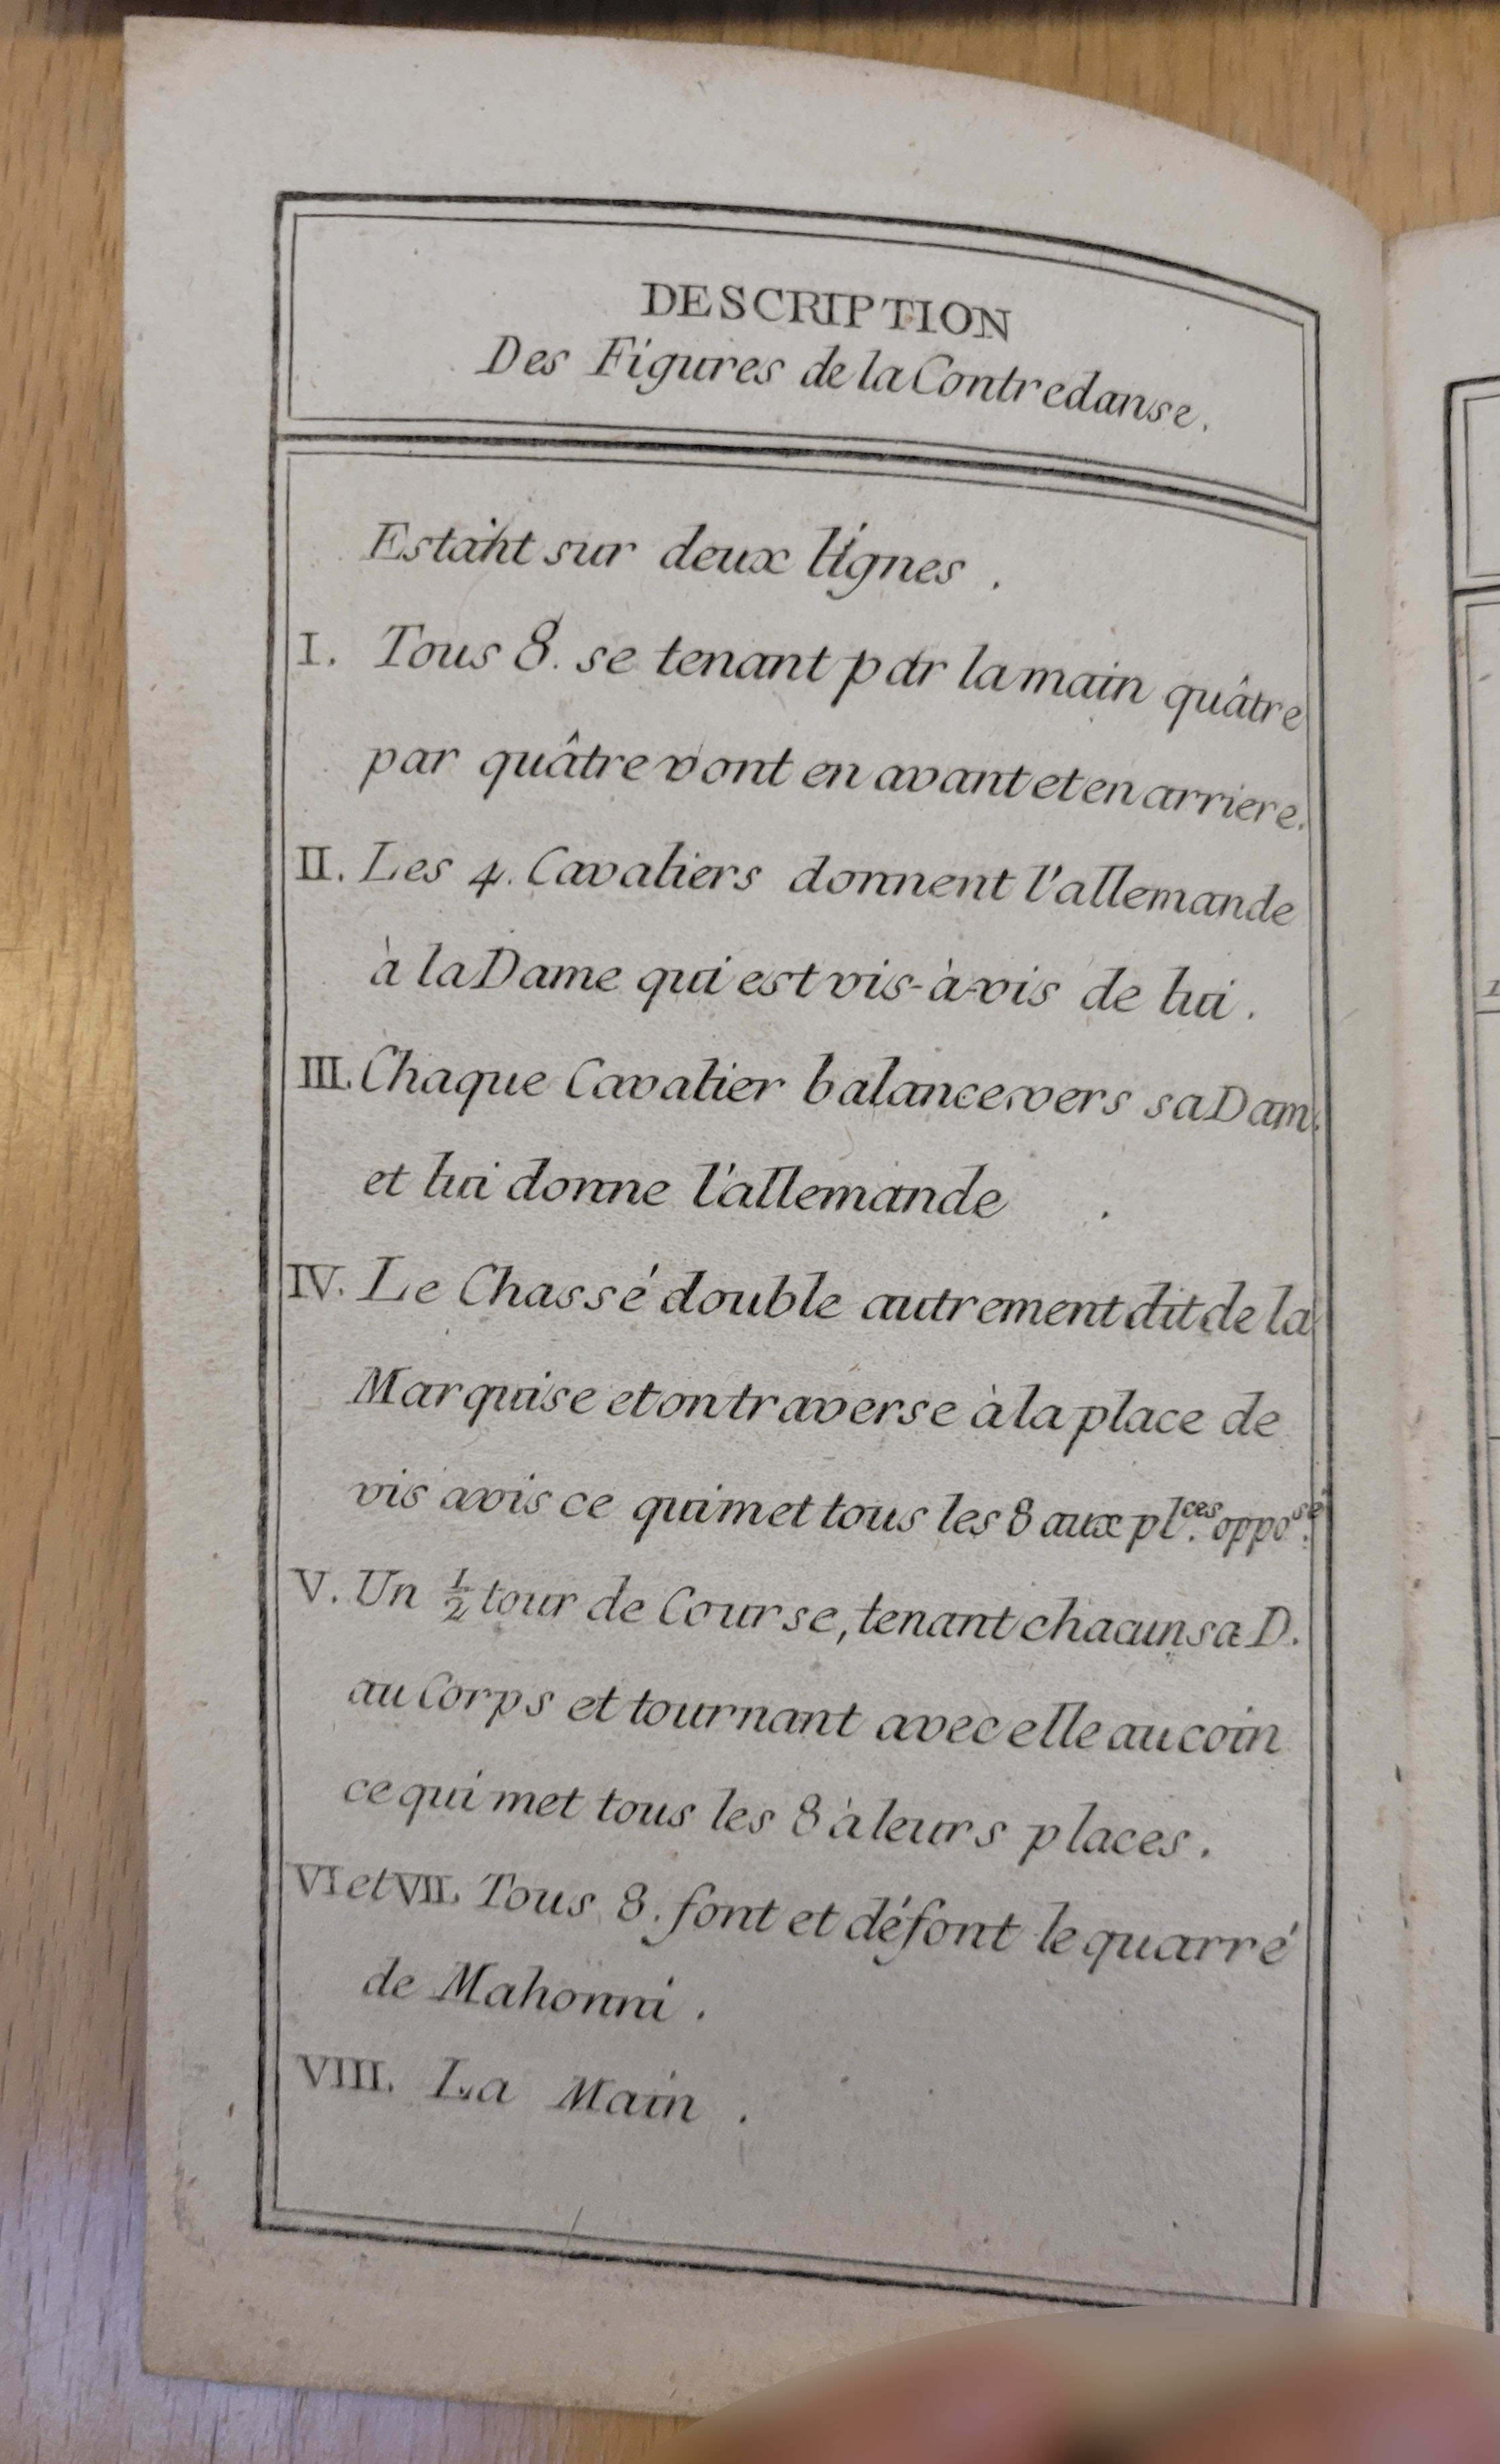 DESCRIPTION
Des Figures de la Contredanse.
Estant sur deux lignes.
I. Tous 8. se tenant par la main quâtre
par quâtre vont en avant et en arriere.
II. Les 4. Cavaliers donnent l'allemande
à la Dame qui est vis-à-vis de lui.
III. Chaque Cavalier balance vers sa Dam.
et lui donne l'allemande.
IV. Le Chassé double autrement dit de la
Marquise et on traverse à la place de
vis avis ce qui met tous les 8 aux pl.ces oppo.sé
V. Un 1/2 tour de Course, tenant chacun sa D.
au Corps et tournant avec elle au coin
ce qui met tous les 8 à leurs places.
VI et VII. Tous 8. font et défont le quarré
de Mahonni.
VIII. La Main.